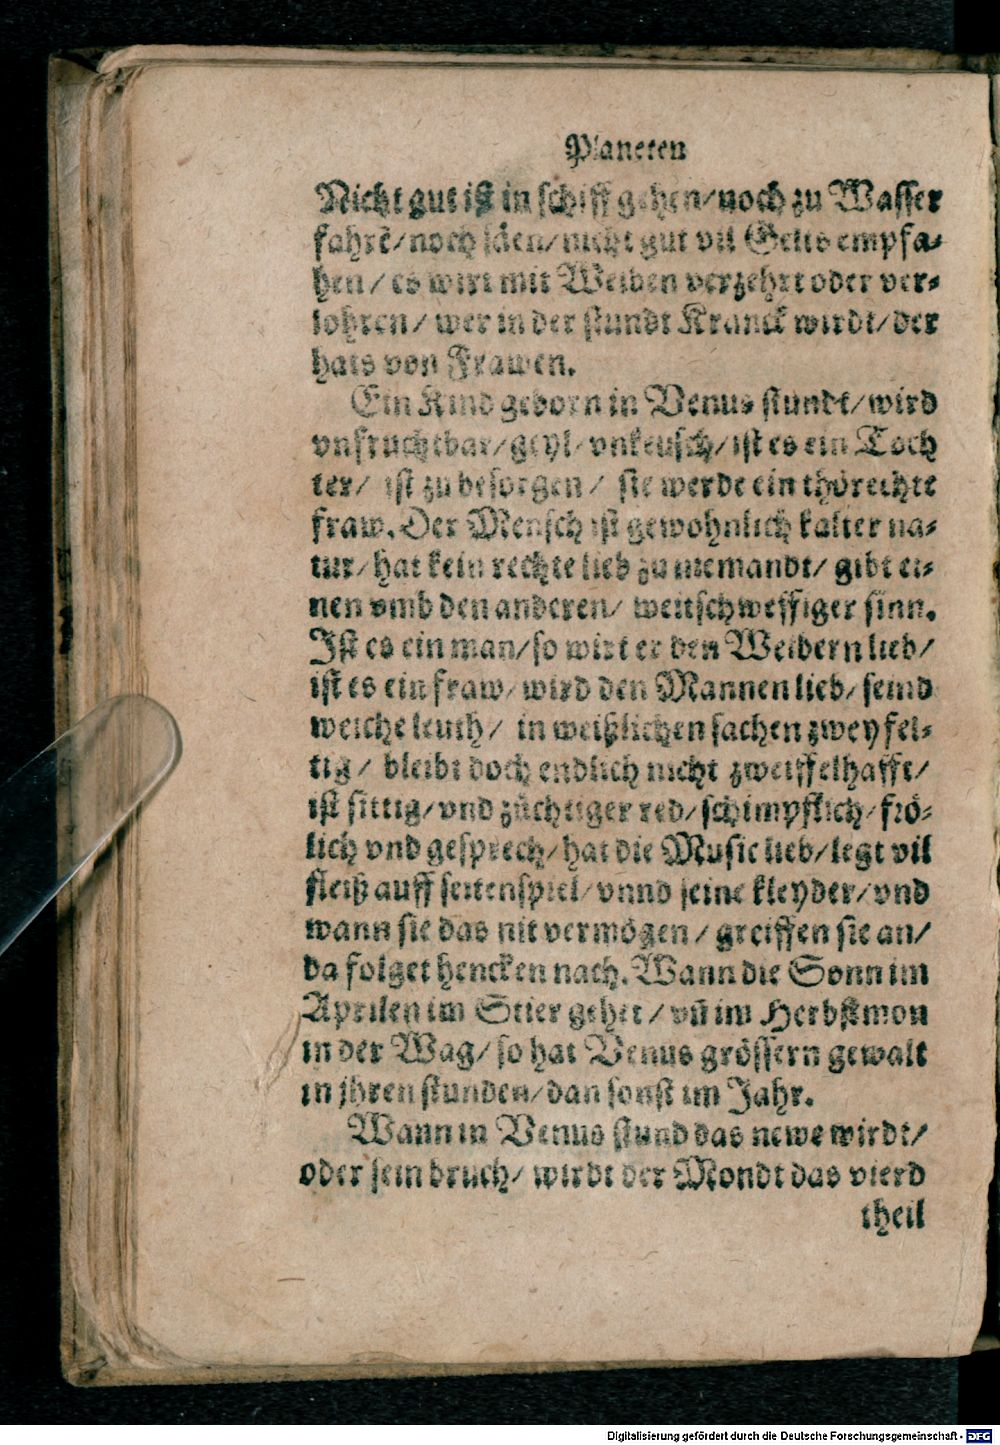 Planeten
Nicht gut ist in schiff gehen/noch zu Wasser
fahrẽ/noch säen/nicht gut vil Gelts empfa-
hen/es wirt mit Weiben verzehrt oder ver-
lohren/wer in der stundt Kranck wirdt/der
hats von Frawen.
Ein Kind geborn in Venus stundt/wird
vnfruchtbar/geyl/vnkeusch/ist es ein Toch
ter/ ist zu besorgen/ sie werde ein thörechte
fraw. Der Mensch ist gewohnlich kalter na-
tur/hat kein rechte lieb zu niemandt/gibt ei-
nen vmb den anderen/ weitschweffiger sinn.
Ist es ein man/so wirt er den Weibern lieb/
ist es ein fraw/wird den Mannen lieb/seind
weiche leuth/ in weißlichen sachen zweyfel-
tig/ bleibt doch endlich nicht zweiffelhafft/
ist sittig/vnd züchtiger red/schimpflich/frö-
lich vnd gesprech/hat die Music lieb/legt vil
fleiß auff seitenspiel/vnnd seine kleyder/vnd
wann sie das nit vermögen/greiffen sie an/
da folget hencken nach. Wann die Sonn im
Aprilen im Stier gehet/vñ im Herbstmon
in der Wag/so hat Venus grössern gewalt
in jhren stunden/dan sonst im Jahr.
Wann in Venus stund das newe wirdt/
oder sein bruch/wirdt der Mondt das vierd
theil
Digitalisierung gefördert durch die Deutsche Forschungsgemeinschaft - DFG